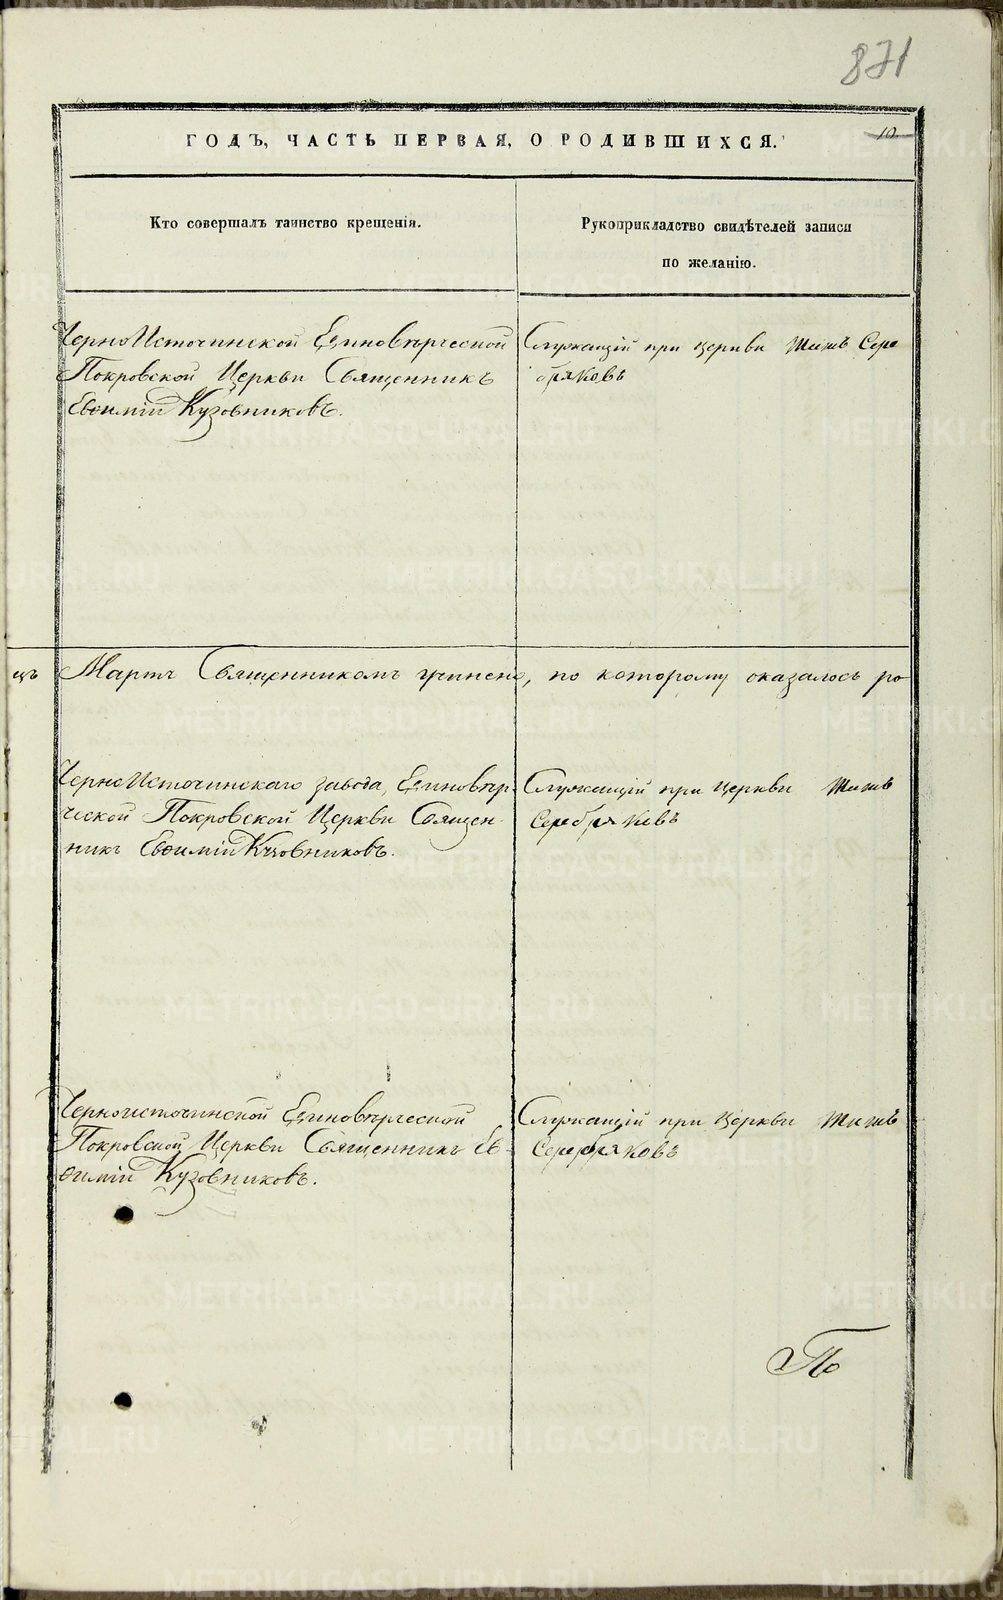 871
ГОДЪ, ЧАСТЬ ПЕРВАЯ, О РОДИВШИХСЯ.
10
Кто совершалъ таинство крещенія.
Рукоприкладство свидѣтелей записи
по желанію.
ЧерноИсточинской Единовѣрческой
Покровской Церкви Священникъ
Евѳимій Кузовниковъ.
Служащій при церкви Титъ Сере
бряковъ
цъ Мартъ Священникомъ учинено, по которому оказалось ро
ЧерноИсточинскаго завода, Единовѣр-
ческой Покровской Церкви Священ-
никъ Евѳимій Кузовниковъ.
Служащій при церкви Титъ
Серебряковъ
Черноисточинской Единовѣрческой
Покровской Церкви Священникъ Ев-
ѳимій Кузовниковъ.
Служащій при Церкви Титъ
Серебряковъ
METRIKI.GASO-URAL.RU